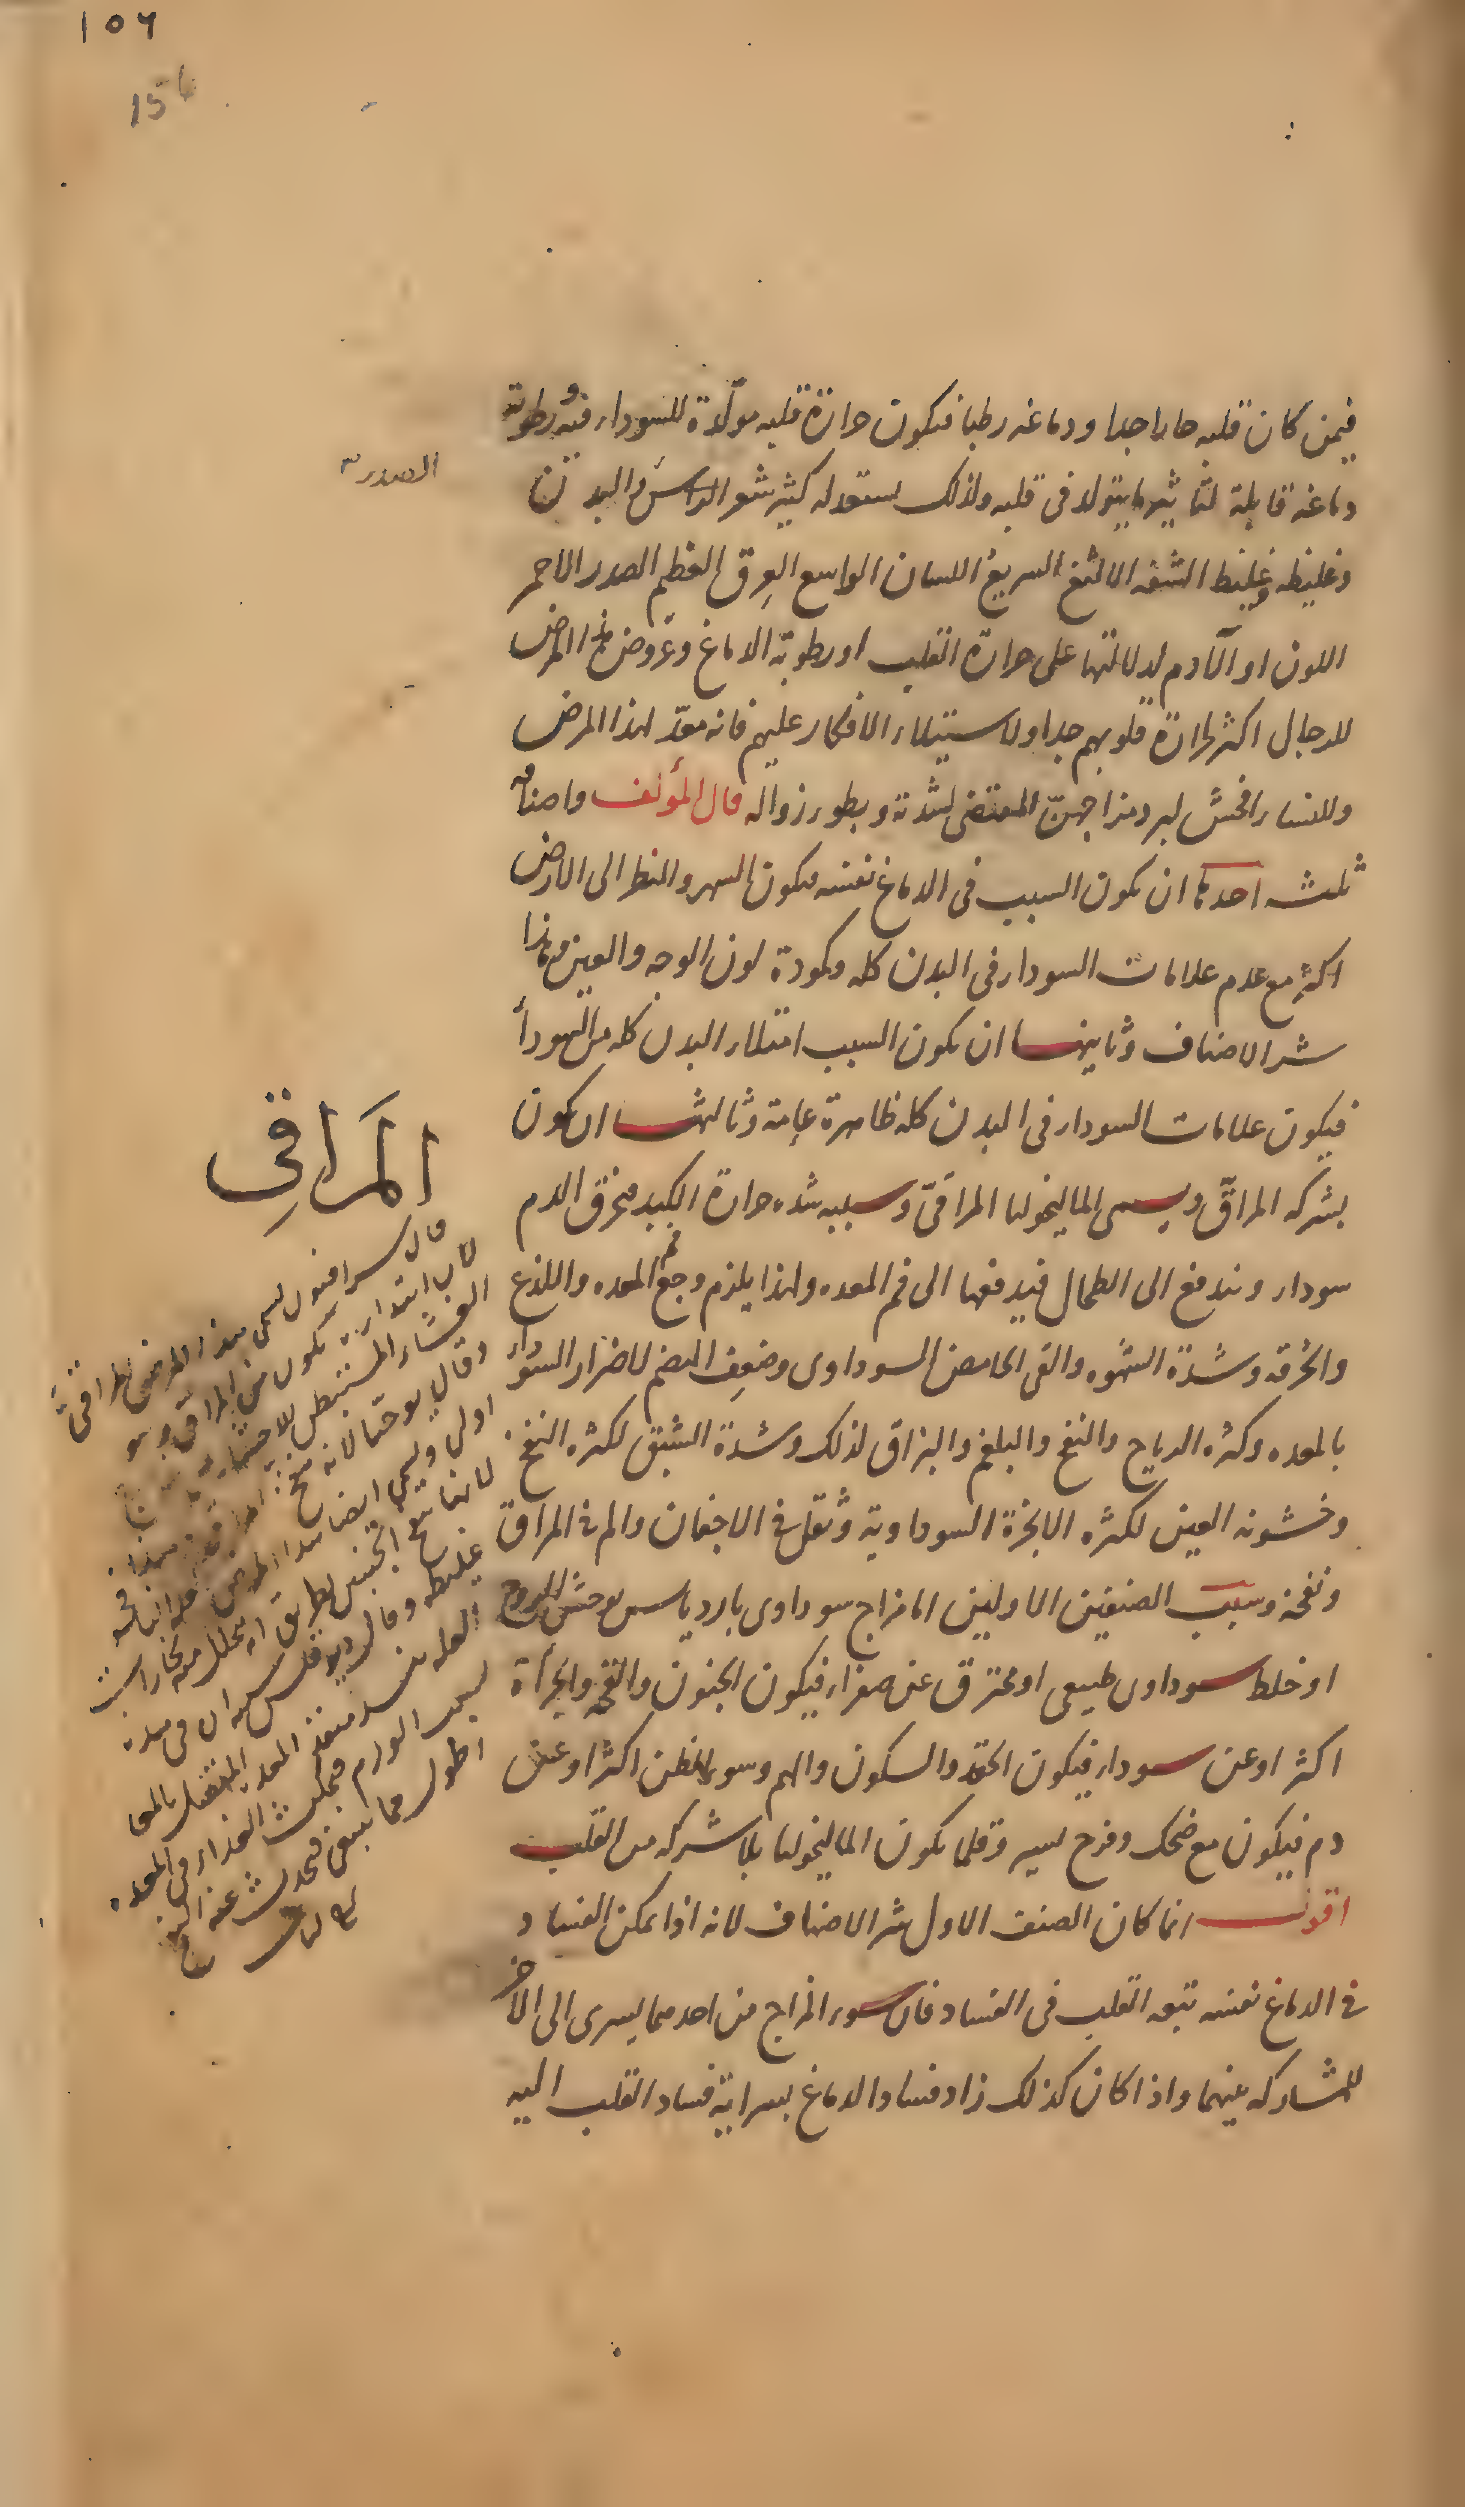 ١٥٦
156
فيمن كان قلبه حارا جدا ودماغه رطبا فيكون حرارة قلبه مولّدة للسوداء فيه ورطوبة
الصدر
دماغه قابلة لتأثير ما يتولد فى قلبه ولذلك يستعد له كثير شعر الرأس والبدن
وغليظه وغليظ الشفه الالثغ السريع اللسان الواسع العِرق العظيم الصدر الاحمر
اللون او الآدم لدلالتها على حرارة القلب او رطوبة الدماغ وعروض هذا المرض
للرجال اكثر لحرارة قلوبهم جدا ولاستيلاء الافكار عليهم فانه معدّ لهذا المرض
وللنساء افحش لبرد مزاجهنّ المقتضى لشدته وبطوء زواله قال المؤلف واصنافه
ثلث احدها ان يكون السبب فى الدماغ نفسه فيكون السهر والنظر الى الارض
اكثر مع عدم علامات السوداء فى البدن كله وكمودة لون الوجه والعين وهذا
شر الاصناف وثانيها ان يكون السبب امتلاء البدن كله من السوداء
فيكون علامات السوداء فى البدن كله ظاهرة عامة وثالثها ان يكون
بشركه المراقّ ويسمى الماليخوليا المراقىّ وسببه شده حرارة الكبد فيحرق الدم
سوداء ويندفع الى الطحال فيدفعها الى فم المعده ولهذا يلزم وجع فم المعده واللذع
والحرقه وشدة الشهوه والقى الحامض السوداوى وضعف الهضم لاضرار السوداء
بالمعده وكثره الرياح والنفخ والبلغم والبزاق لذلك وشدة الشبق لكثره النفخ
وخشونه العين لكثره الابخرة السوداوية وثقل فى الاجفان والم فى المراق
ونفخة وسبب الصنفين الاولين اما مزاج سوداوى بارد يابس يوحش الروح
او خلط سوداوى طبيعى او محترق عن صفراء فيكون الجنون والقحة والجرأة
اكثر او عن سوداء فيكون الحقد والسكون والهم وسوء الظن اكثر او عن
دم فيكون مع ضحك وفرح يسير وقلما يكون الماليخوليا بلا شركه من القلب
اقول انما كان الصنف الاول شر الاصناف لانه اذا تمكن الفساد
فى الدماغ نفسه تبعه القلب فى الفساد فان سوء المزاج من احدهما يسرى الى الآخر
للمشاركه بينهما واذا كان كذلك زاد فساد الدماغ بسراية فساد القلب اليه
المَراقِى
قال سرافيون يسمى هذا المرض المراقى
لان ابتداءه يكون من المراق وهو
الغشاء المستبطن للاحشاء
وقال يوحنا لانه
اولى ويسمى ايضا هذا المرض العله النافخه
غليظه وقال ديوقلس ان فى هذه
العله يفسد منفذ المعده المتصل بالمعى
بسبب الورم فيمكث الغذاء فى المعده
اطول مما ينبغى فيحدث عنه